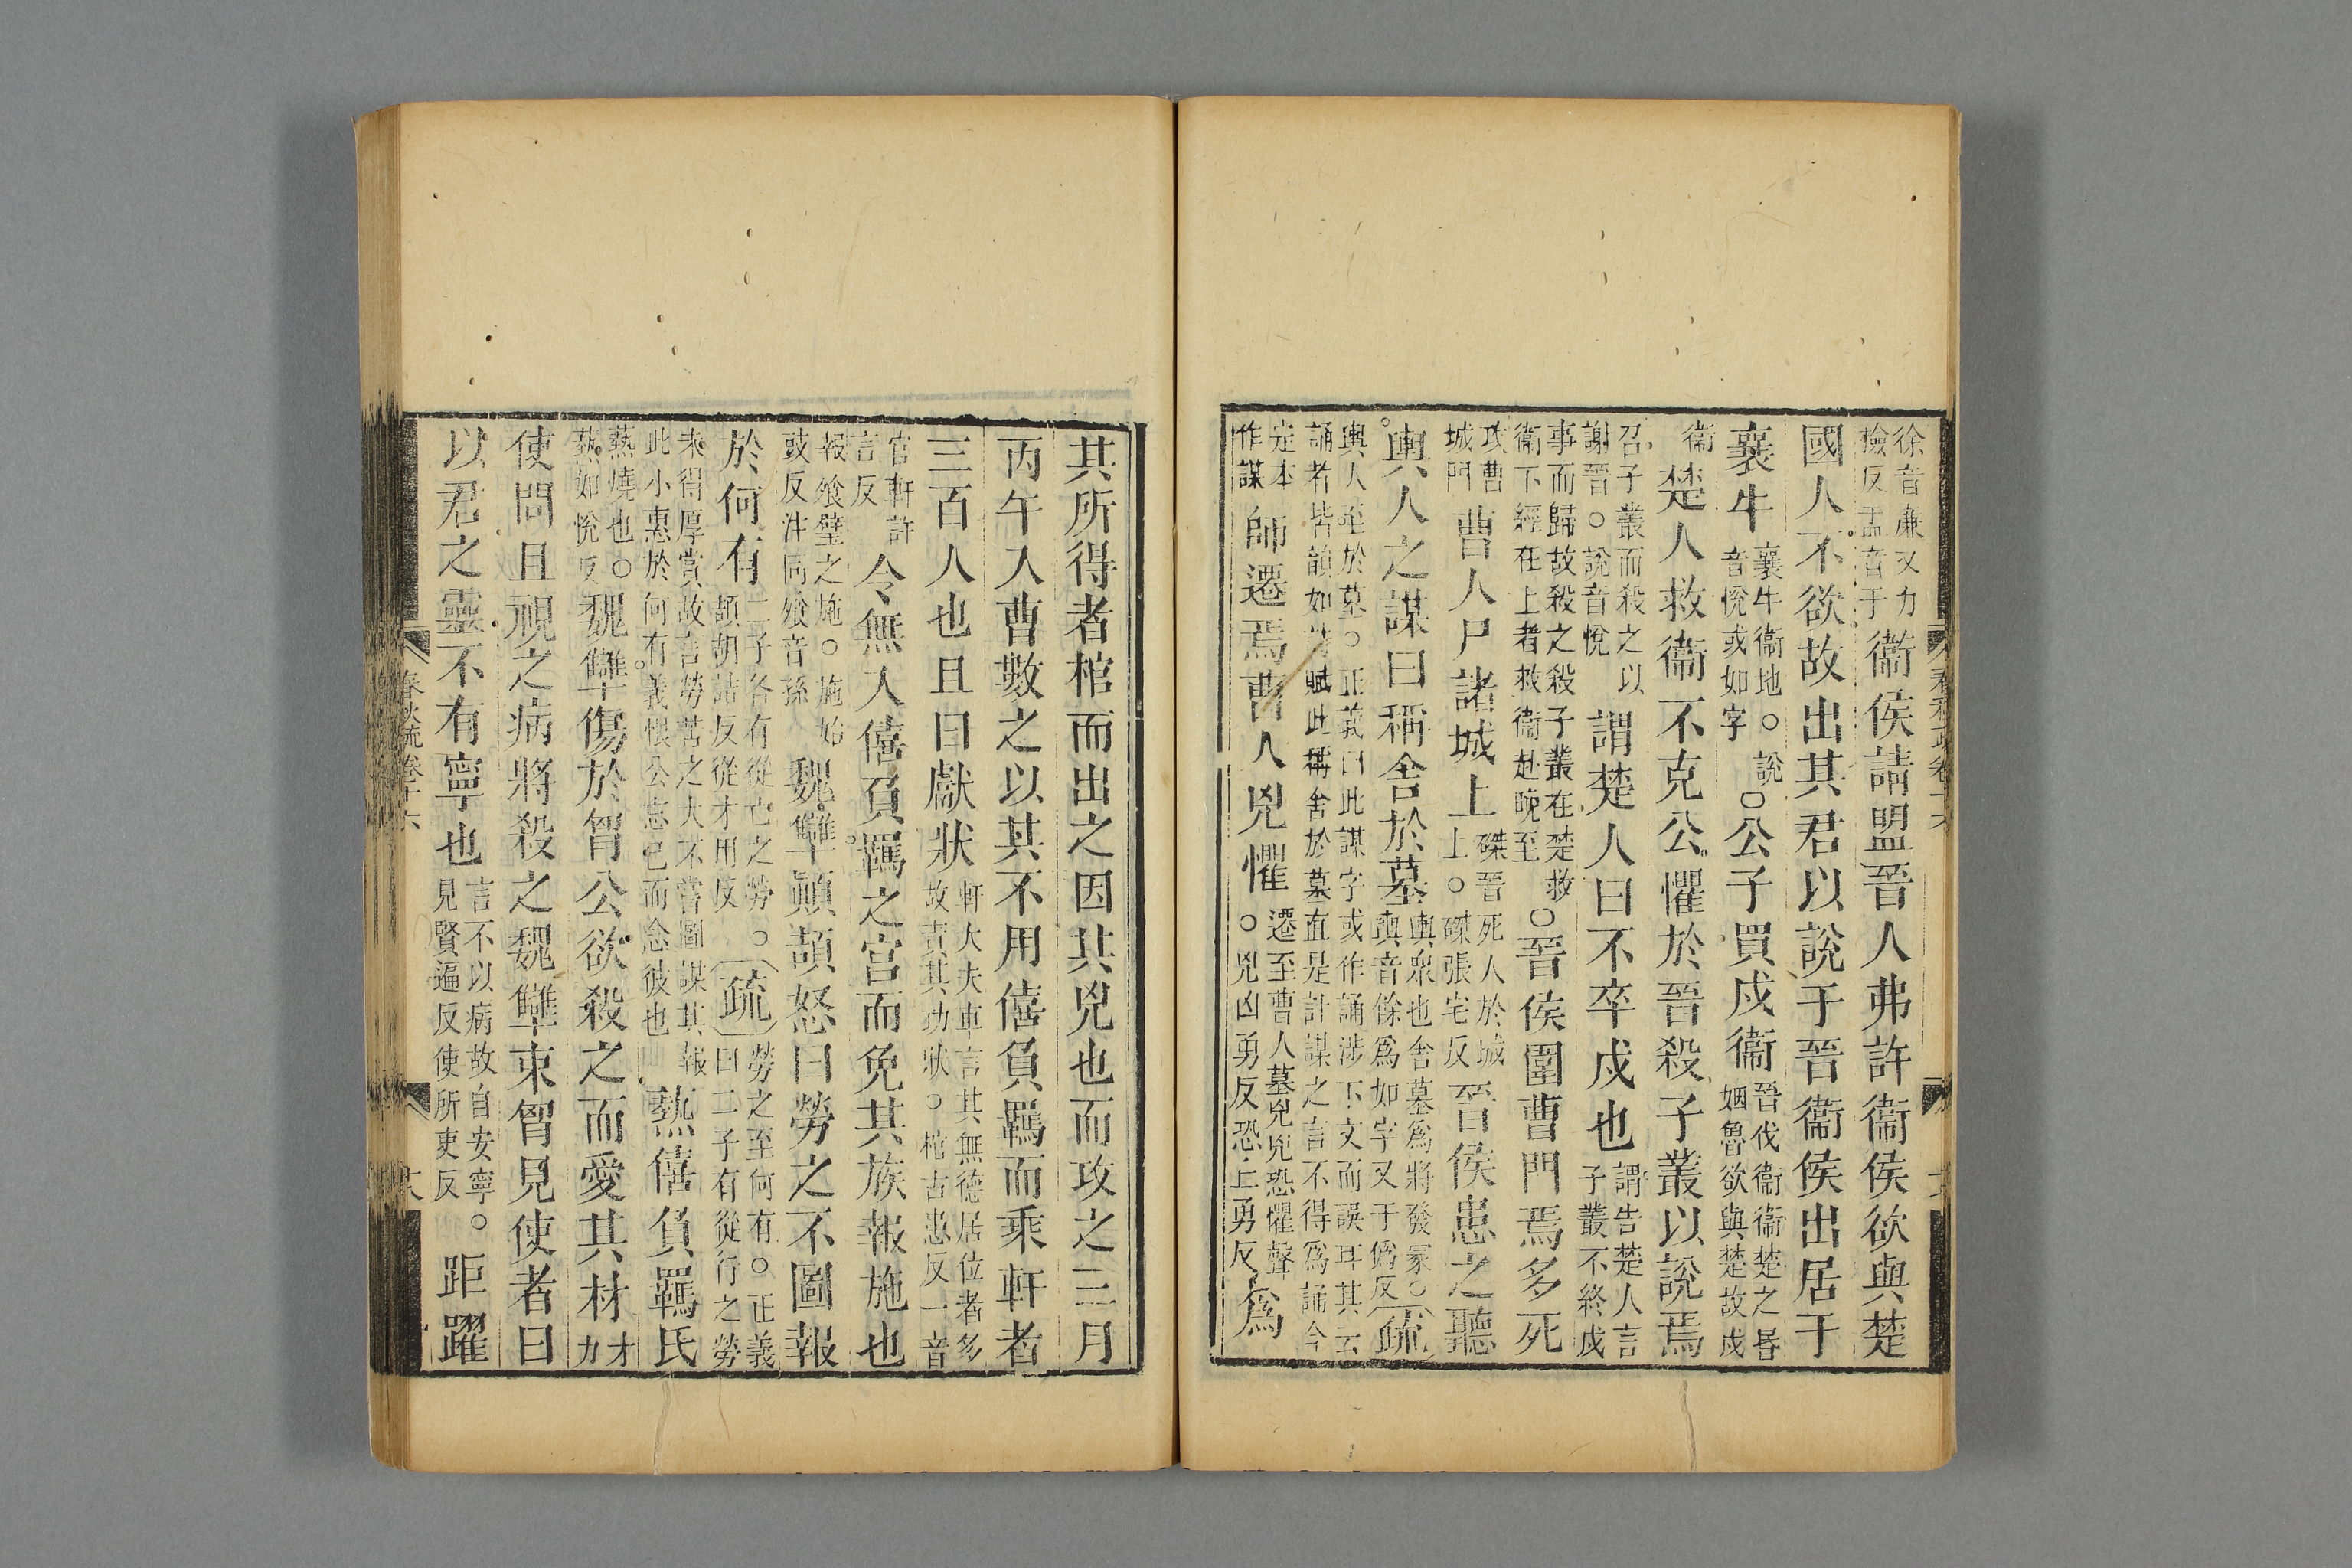 徐音廉又力
撿反盂音于
衞侯請盟晉人弗許衞侯欲與楚
國人不欲故出其君以說于晉衞侯出居于
襄牛
襄牛衞地○說
音悅或如字
○公子買戍衞
晉伐衞衞楚之昬
姻魯欲與楚故戍
衞
楚人救衞不克公懼於晉殺子叢以說焉
召子叢而殺之以
謝晉○說音悅
謂楚人曰不卒戍也
謂告楚人言
子叢不終戍
事而歸故殺之殺子叢在楚救
衞下經在上者救衞赴晚至
○晉侯圍曹門焉多死
攻曹
城門
曹人尸諸城上
磔晉死人於城
上○磔張宅反
晉侯患之聽
輿人之謀曰稱舍於墓
輿衆也舍墓爲將發冢○
輿音餘爲如字又于僞反
疏
輿人至於墓○正義曰此謀字或作誦涉下文而誤耳其云
誦者皆韻如詩賦此稱舍於墓直是計謀之言不得爲誦今
定本
作謀
師遷焉曹人兇懼
遷至曹人墓兇兇恐懼聲
○兇凶勇反恐丘勇反
爲
其所得者棺而出之因其兇也而攻之三月
丙午入曹數之以其不用僖負羈而乘軒者
三百人也且曰獻狀
軒大夫車言其無德居位者多
故責其功狀○棺古患反一音
官軒許
言反
令無入僖負羈之宮而免其族報施也
報飧璧之施○施始
豉反注同飧音孫
魏犫顚頡怒曰勞之不圖報
於何有
二子各有從亡之勞○
頡胡結反從才用反
疏
勞之至何有○正義
曰二子有從行之勞
未得厚賞故言勞苦之大不嘗圖謀其報
此小惠於何有義恨公忘己而念彼也
爇僖負羈氏
爇燒也○
爇如悅反
魏犫傷於胷公欲殺之而愛其材
才
力
使問且視之病將殺之魏犫束胷見使者曰
以君之靈不有寧也
言不以病故自安寧○
見賢遍反使所吏反
距躍
春秋疏卷十六